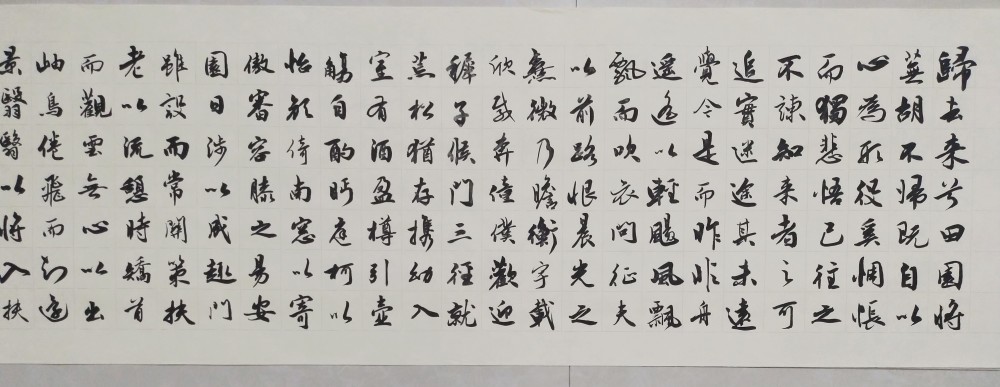 歸去来兮田園将
蕪胡不歸既自以
心為形役奚惆悵
而獨悲悟已往之
不諫知来者之可
追實迷途其未遠
覺今是而昨非舟
遥遥以輕颺風飄
飄而吹衣問征夫
以前路恨晨光之
熹微乃瞻衡宇載
欣載奔僮僕歡迎
稚子候門三徑就
荒松猶存携幼入
室有酒盈樽引壺
觴自酌眄庭柯以
怡顔倚南窓以寄
傲審容膝之易安
園日涉以成趣門
雖設而常關策扶
老以流憩時矯首
而觀雲無心以出
岫鳥倦飛而知還
景翳翳以将入扶